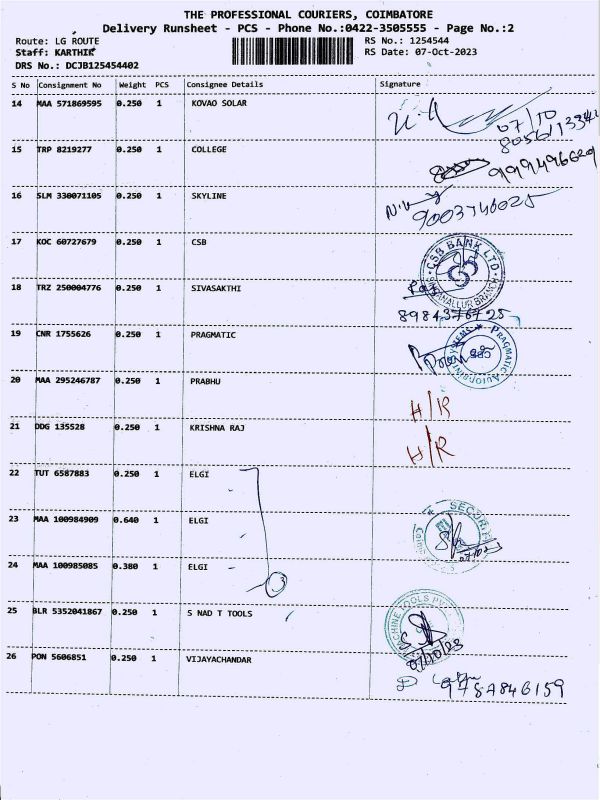 THE PROFESSIONAL COURIERS, COIMBATORE
Delivery Runsheet - PCS - Phone No.:0422-3505555 - Page No.:2
Route: LG ROUTE RS No.: 1254544
Staff: KARTHIK RS Date: 07-Oct-2023
DRS No.: DCJB125454402
S No Consignment No Weight PCS Consignee Details Signature
14 MAA 571869595 0.250 1 KOVAO SOLAR
07/10
15 TRP 8219277 0.250 1 COLLEGE
16 SLM 330071105 0.250 1 SKYLINE
9003746025
17 KOC 60727679 0.250 1 CSB
CSB BANK LTD.
SINGANALLUR BRANCH
18 TRZ 250004776 0.250 1 SIVASAKTHI
8984376725
19 CNR 1755626 0.250 1 PRAGMATIC
PRAGMATIC
20 MAA 295246787 0.250 1 PRABHU
H/R
21 DDG 135528 0.250 1 KRISHNA RAJ
H/R
22 TUT 6587883 0.250 1 ELGI
23 MAA 100984909 0.640 1 ELGI
SECURITY
24 MAA 100985085 0.380 1 ELGI
3
25 BLR 5352041867 0.250 1 S NAD T TOOLS
MACHINE TOOLS
07/10/23
26 PON 5606851 0.250 1 VIJAYACHANDAR